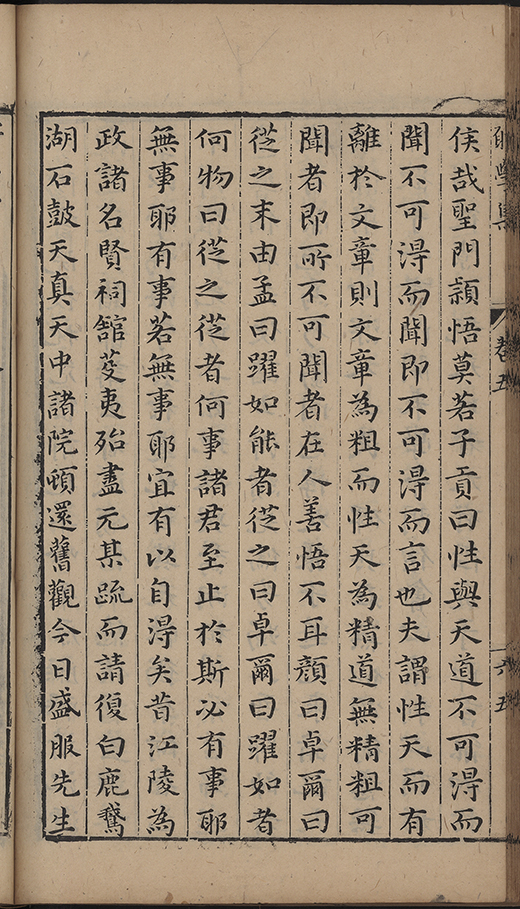 卷五
六五
俟哉聖門頴悟莫若子貢曰性與天道不可得而
聞不可得而聞即不可得而言也夫謂性天而有
離於文章則文章為粗而性天為精道無精粗可
聞者即所不可聞者在人善悟不耳顔曰卓爾曰
從之末由孟曰躍如能者從之曰卓爾曰躍如者
何物曰從之從者何事諸君至止於斯必有事耶
無事耶有事若無事耶宜有以自得矣昔江陵為
政諸名賢祠舘芟夷殆盡元某疏而請復白鹿鵞
湖石鼓天真天中諸院頓還舊觀今日盛服先生